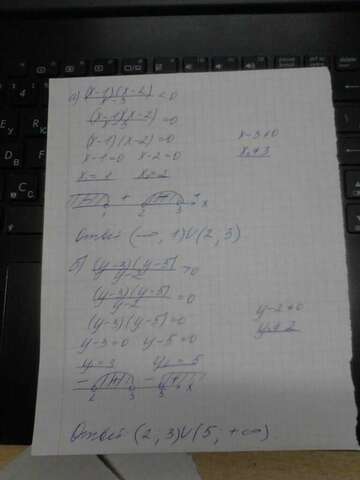 а) (x-1)(x-2)/x-3 <0
(x-1)(x-2)/x-3 =0
(x-1)(x-2)=0
x-3≠0
x-1=0 x-2=0
x≠3
x₁=1 x₂=2
- + - +
1 2 3 x
Ответ (-∞, 1)∪(2, 3)
б) (y-3)(y-5)/y-2 >0
(y-3)(y-5)/y-2 =0
(y-3)(y-5)=0
y-2≠0
y-3=0 y-5=0
y≠2
y=3 y₂=5
- + - +
2 3 5 x
Ответ (2; 3)∪(5; +∞)